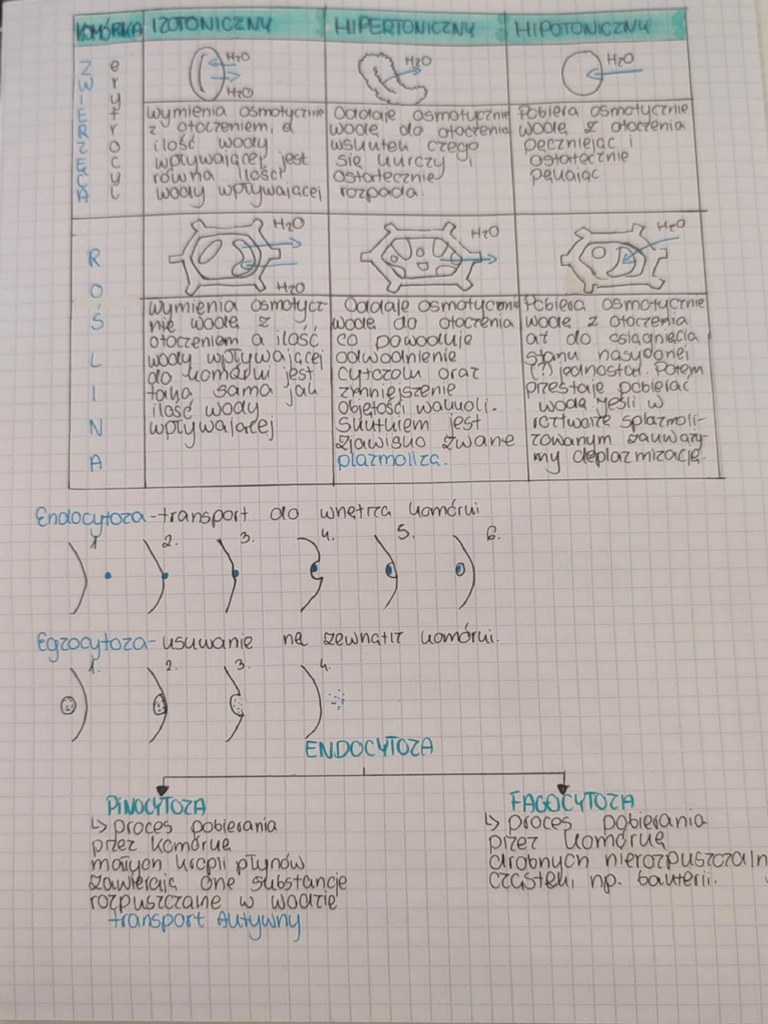 KOMÓRKA IZOTONICZNY HIPERTONICZNY HIPOTONICZNY
ZWIERZĘCA
erytrocyt
H2O
H2O
wymienia osmotycznie
z otoczeniem, a
ilość wody
wpływającej jest
równa ilości
wody wpływającej
H2O
Oddaje osmotycznie
wodę do otoczenia
wskutek czego
się kurczy i
ostatecznie
rozpada.
H2O
Pobiera osmotycznie
wodę z otoczenia
pęczniejąc i
ostatecznie
pękając
ROŚLINA
H2O
H2O
wymienia osmotycz-
nie wodę z
otoczeniem a ilość
wody wpływającej
do komórki jest
taka sama jak
ilość wody
wpływającej
H2O
Oddaje osmotycznie
wodę do otoczenia
co powoduje
odwodnienie
cytozolu oraz
zmniejszenie
objętości wakuoli.
Skutkiem jest
zjawisko zwane
plazmoliza.
H2O
Pobiera osmotycznie
wodę z otoczenia
aż do osiągnięcia
stanu nasyconej
(?) jednostad. Potem
przestaje pobierać
wodę. Jeśli w
roztworze splazmoli-
zowanym zauważy-
my deplazmizację.
Endocytoza - transport do wnętrza komórki
1. 2. 3. 4. 5. 6.
Egzocytoza - usuwanie na zewnątrz komórki.
1. 2. 3. 4.
ENDOCYTOZA
PINOCYTOZA
↳ proces pobierania
przez komórkę
małych kropli płynów
zawierają one substancje
rozpuszczane w wodzie
transport aktywny
FAGOCYTOZA
↳ proces pobierania
przez komórkę
drobnych nierozpuszczaln
cząstek, np. bakterii.